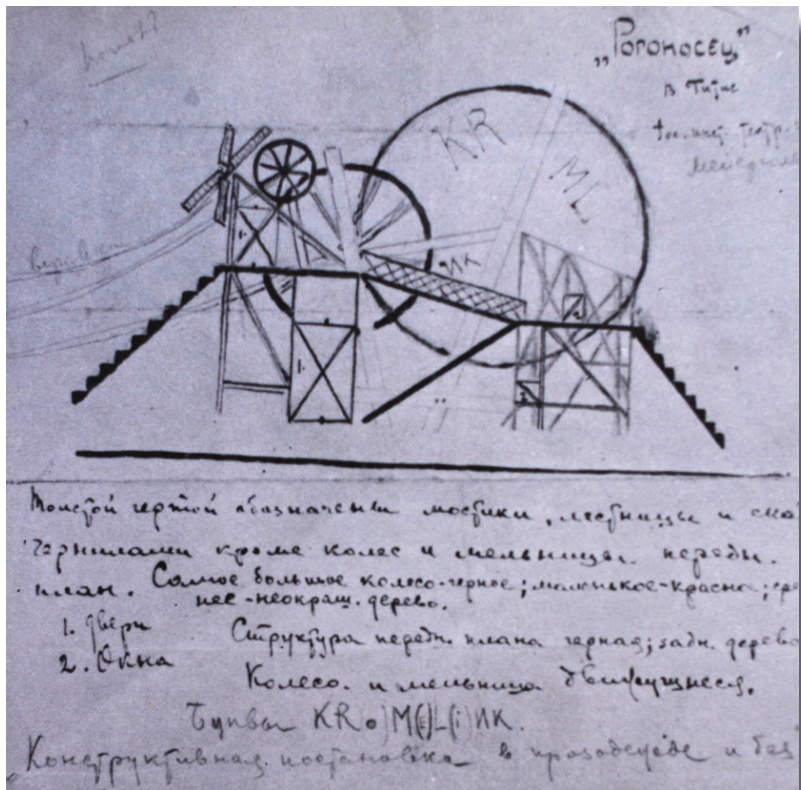 „Рогоносец”
в Гитис
KR
ML
ИК
1.
1.
2
2
Толстой чертой обозначены мостики, лестницы и ска
чернилами кроме колес и мельницы передн.
план. Самое большое колесо-черное; маленькое-красное; сре
нее-неокраш. дерево.
1. Двери
Структура передн. плана черная; задн. дерево
2. Окна
Колесо и мельница движущиеся.
Буквы KR(o)M(e)L(i)ИК.
Конструктивная постановка в прозодежде и без